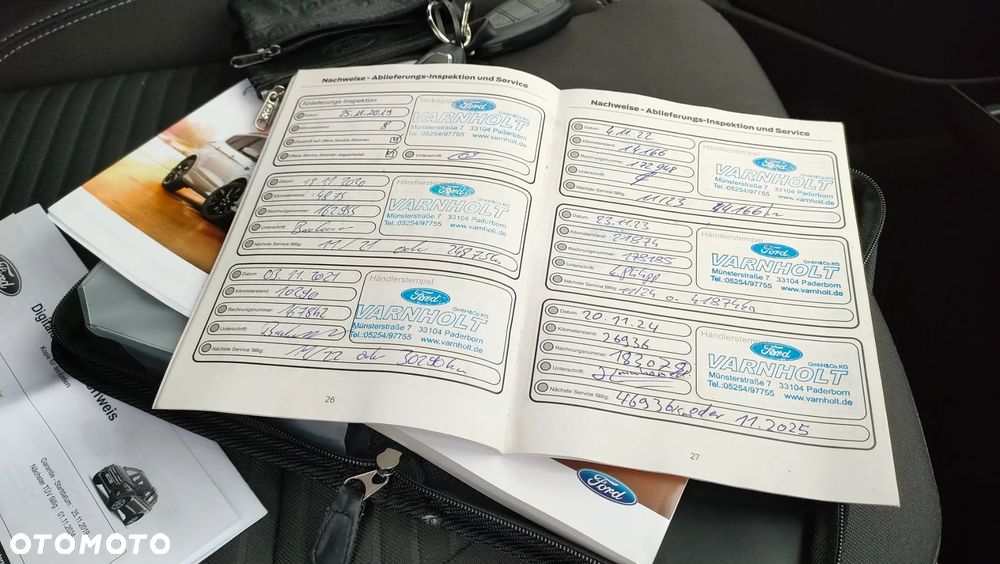 Nachweise - Ablieferungs-Inspektion und Service
Ablieferungs-Inspektion
Datum: 25.11.2019
Kilometerstand: 8
Offene Service Aktionen abgearbeitet
Unterschrift:
Ford
GmbH&Co.KG
VARNHOLT
Münsterstraße 7 33104 Paderborn
Tel. 05254/97755 www.varnholt.de
Datum: 18.11.2020
Kilometerstand: 4875
Rechnungsnummer: 162955
Unterschrift:
Nächste Service fällig: 11/21 oder
Händlerstempel
Ford
GmbH&Co.KG
VARNHOLT
Münsterstraße 7 33104 Paderborn
Tel.:05254/97755 www.varnholt.de
Datum: 03.11.2021
Kilometerstand: 10290
Rechnungsnummer: 167842
Unterschrift:
Nächste Service fällig: 11/22 oder 30290km
Händlerstempel
Ford
GmbH&Co.KG
VARNHOLT
Münsterstraße 7 33104 Paderborn
Tel.:05254/97755 www.varnholt.de
26
Nachweise - Ablieferungs-Inspektion und Service
Datum: 4.11.22
Kilometerstand: 14166
Rechnungsnummer: 172948
Unterschrift:
Nächste Service fällig: 11.23
Händlerstempel
Ford
GmbH&Co.KG
VARNHOLT
Münsterstraße 7 33104 Paderborn
Tel.:05254/97755 www.varnholt.de
Datum: 23.11.23
Kilometerstand: 21874
Rechnungsnummer: 178185
Unterschrift:
Nächste Service fällig: 11/24 o. 41874km
Händlerstempel
Ford
GmbH&Co.KG
VARNHOLT
Münsterstraße 7 33104 Paderborn
Tel.:05254/97755 www.varnholt.de
Datum: 20.11.24
Kilometerstand: 26936
Rechnungsnummer: 183079
Unterschrift:
Nächste Service fällig: 46936km oder 11.2025
Händlerstempel
Ford
GmbH&Co.KG
VARNHOLT
Münsterstraße 7 33104 Paderborn
Tel.:05254/97755 www.varnholt.de
27
Ford
Ford
Garantie - Startdatum - 25.11.2019
Nächster TÜV fällig
OTOMOTO